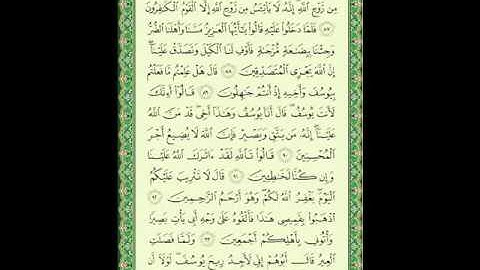 مِن رَّوْحِ ٱللَّهِ إِنَّهُۥ لَا يَا۟يْـَٔسُ مِن رَّوْحِ ٱللَّهِ إِلَّا ٱلْقَوْمُ ٱلْكَـٰفِرُونَ
٨٧ فَلَمَّا دَخَلُوا۟ عَلَيْهِ قَالُوا۟ يَـٰٓأَيُّهَا ٱلْعَزِيزُ مَسَّنَا وَأَهْلَنَا ٱلضُّرُّ
وَجِئْنَا بِبِضَـٰعَةٍ مُّزْجَىٰةٍ فَأَوْفِ لَنَا ٱلْكَيْلَ وَتَصَدَّقْ عَلَيْنَآ
إِنَّ ٱللَّهَ يَجْزِى ٱلْمُتَصَدِّقِينَ ٨٨ قَالَ هَلْ عَلِمْتُم مَّا فَعَلْتُم
بِيُوسُفَ وَأَخِيهِ إِذْ أَنتُمْ جَـٰهِلُونَ ٨٩ قَالُوٓا۟ أَءِنَّكَ
لَأَنتَ يُوسُفُ قَالَ أَنَا۠ يُوسُفُ وَهَـٰذَآ أَخِى قَدْ مَنَّ ٱللَّهُ
عَلَيْنَآ إِنَّهُۥ مَن يَتَّقِ وَيَصْبِرْ فَإِنَّ ٱللَّهَ لَا يُضِيعُ أَجْرَ
ٱلْمُحْسِنِينَ ٩٠ قَالُوا۟ تَٱللَّهِ لَقَدْ ءَاثَرَكَ ٱللَّهُ عَلَيْنَا
وَإِن كُنَّا لَخَـٰطِـِٔينَ ٩١ قَالَ لَا تَثْرِيبَ عَلَيْكُمُ
ٱلْيَوْمَ يَغْفِرُ ٱللَّهُ لَكُمْ وَهُوَ أَرْحَمُ ٱلرَّٰحِمِينَ ٩٢
ٱذْهَبُوا۟ بِقَمِيصِى هَـٰذَا فَأَلْقُوهُ عَلَىٰ وَجْهِ أَبِى يَأْتِ بَصِيرًا
وَأْتُونِى بِأَهْلِكُمْ أَجْمَعِينَ ٩٣ وَلَمَّا فَصَلَتِ
ٱلْعِيرُ قَالَ أَبُوهُمْ إِنِّى لَأَجِدُ رِيحَ يُوسُفَ لَوْلَآ أَن